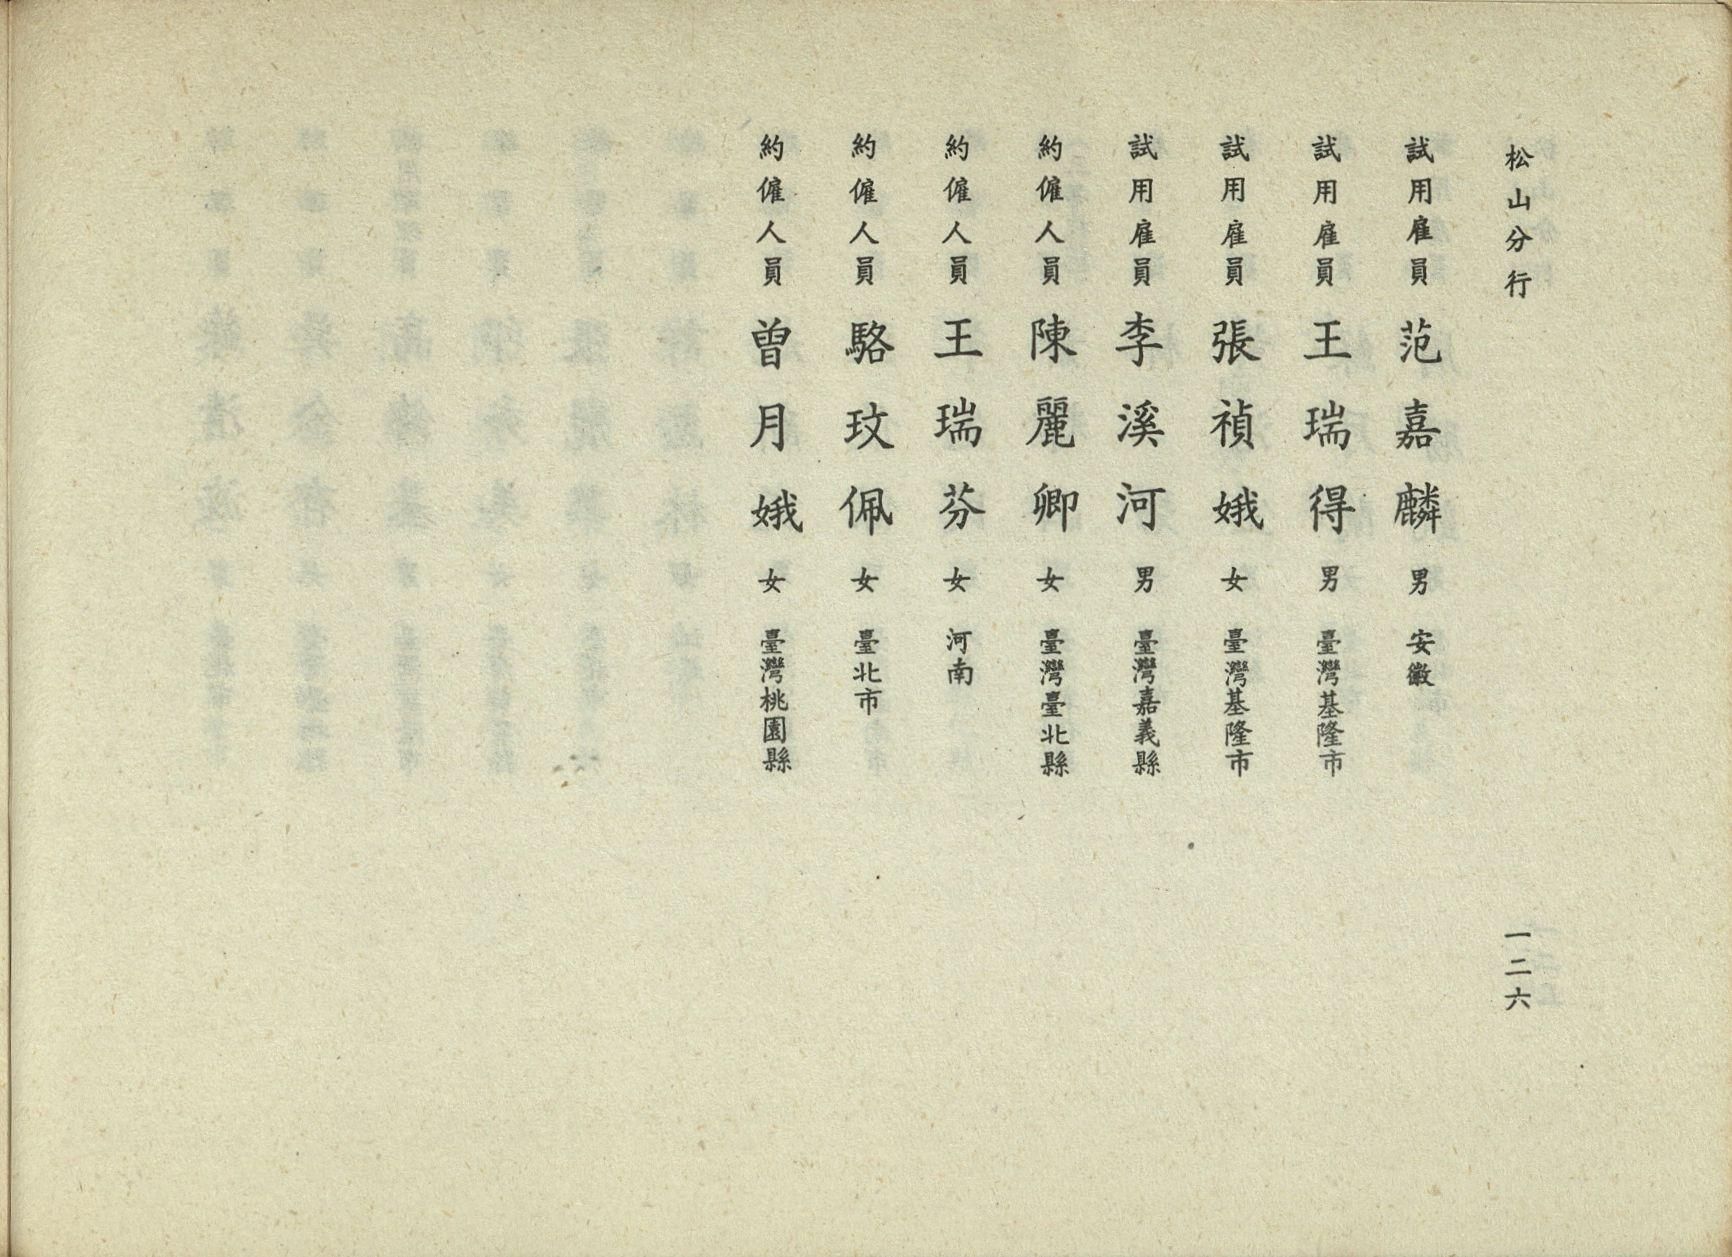 松山分行
一二六
試用雇員 范嘉麟 男 安徽
試用雇員 王瑞得 男 臺灣基隆市
試用雇員 張禎娥 女 臺灣基隆市
試用雇員 李溪河 男 臺灣嘉義縣
約僱人員 陳麗卿 女 臺灣臺北縣
約僱人員 王瑞芬 女 河南
約僱人員 駱玟佩 女 臺北市
約僱人員 曾月娥 女 臺灣桃園縣